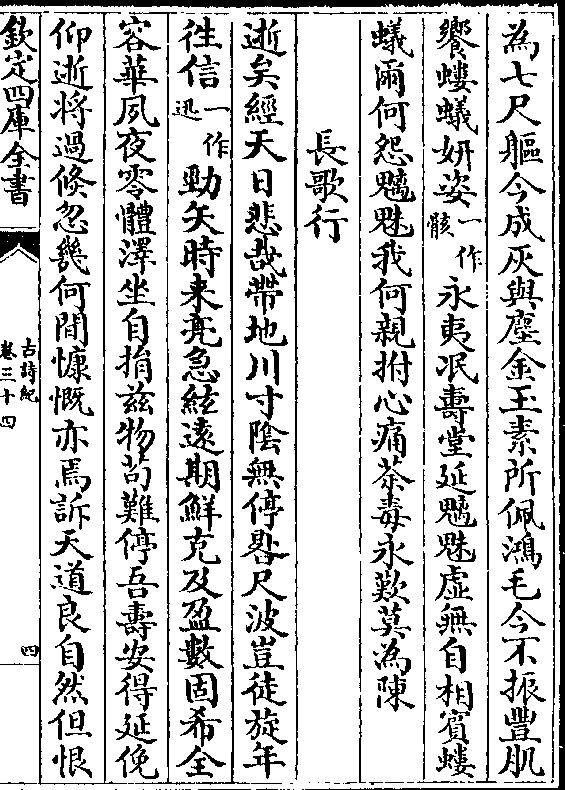 為七尺軀今成灰與塵金玉素所佩鴻毛今不振豐肌
饗螻蟻妍姿一作骸永夷泯壽堂延魑魅虚無自相賓螻
蟻爾何怨魑魅我何親拊心痛荼毒永歎莫為陳
長歌行
逝矣經天日悲哉帶地川寸陰無停晷尺波豈徒旋年
徃信一作迅勁矢時来亮急絃遠期鮮克及盈數固希全
容華夙夜零體澤坐自捐兹物茍難停吾壽安得延俛
仰逝将過倐忽幾何間慷慨亦焉訴天道良自然但恨
欽定四庫全書
古詩紀
卷三十四
四